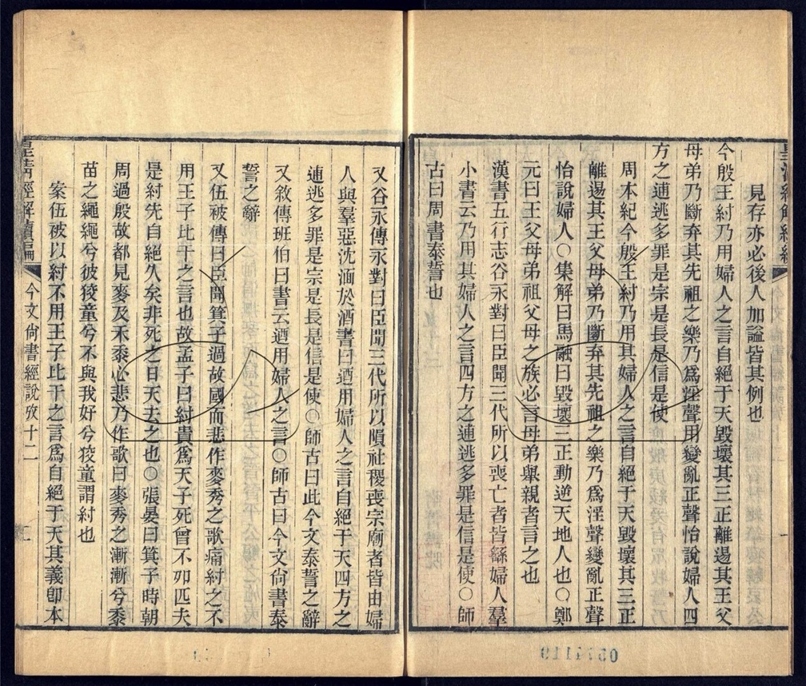 見存亦必後人加謚皆其例也
今殷王紂乃用婦人之言自絕于天毀壞其三正離逷其王父
母弟乃斷弃其先祖之樂乃爲淫聲用變亂正聲怡說婦人四
方之逋逃多罪是宗是長是信是使
周本紀今殷王紂乃用其婦人之言自絕于天毀壞其三正
離逷其王父母弟乃斷弃其先祖之樂乃爲淫聲變亂正聲
怡說婦人○集解曰馬融曰毀壞三正動逆天地人也○鄭
元曰王父母弟祖父母之族必言母弟舉親者言之也
漢書五行志谷永對曰臣聞三代所以喪亡者皆繇婦人羣
小書云乃用其婦人之言四方之逋逃多罪是信是使○師
古曰周書泰誓也
又谷永傳永對曰臣聞三代所以隕社稷喪宗廟者皆由婦
人與羣惡沈湎於酒書曰迺用婦人之言自絕于天四方之
逋逃多罪是宗是長是信是使○師古曰此今文泰誓之辭
又敘傳班伯曰書云迺用婦人之言○師古曰今文尙書泰
誓之辭
又伍被傳曰臣聞箕子過故國而悲作麥秀之歌痛紂之不
用王子比干之言也故孟子曰紂貴爲天子死曾不如匹夫
是紂先自絕久矣非死之日天去之也○張晏曰箕子時朝
周過殷故都見麥及禾黍心悲乃作歌曰麥秀之漸漸兮黍
苗之繩繩兮彼狡童兮不與我好兮狡童謂紂也
案伍被以紂不用王子比干之言爲自絕于天其義卽本
皇淸經解續編
今文尙書經說攷十二
0574119